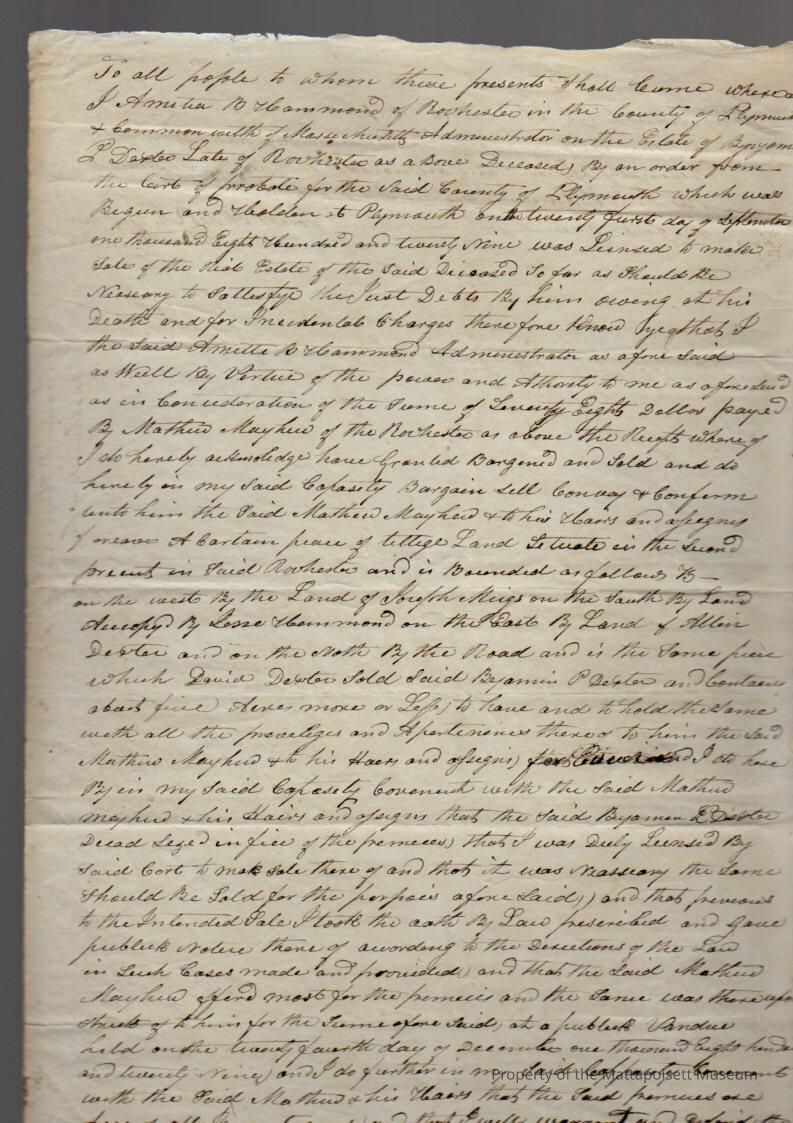 To all people to whom these presents Shall Come whereas
I Amittai B Hammond of Rochester in the County of Plymouth
& Common wealth of Massachusetts Administrator on the Estate of Benjam
P Dexter Late of Rochester as above Deceased, By an order from
the Cort of probate for the Said County of Plymouth which was
Begun and Holden at Plymouth on the twenty furst day of September
one thousand Eight Hundred and twenty Nine was Lensed to make
Sale of the Real Estate of the Said Deceased So far as Should Be
Neaseary to Sattesfye the Just Debts By him owing at his
Death and for Insedental Charges therefore Know ye that I
the Said Amitta B Hammond Administrator as afore Said
as Well By Vertue of the power and Athorety to me as afore Said
as in Concederation of the Sume of Seventy Eight Dollors payed
By Mathew Mayhew of the Rochester as above the Recpt where of
I do hereby acknoledge have Granted Bargened and Sold and do
hereby in my Said Capasety Bargain Sell Convay & Conferm
unto him the Said Mathew Mayhew & to his Haors and assegnes
foreaver A Cartain peace of tillege Land Setuate in the Second
precint in Said Rochester and is Bounded as follows
on the west By the Land of Joseph Meigs on the South By Land
Accupyd By Jesse Hammond on the East By Land of Allin
Dexter and on the Noth By the Road and is the Same piece
which David Dexter Sold Said Bejamin P Dexter and Contains
about five Acres more or Less, to have and to hold the Same
with all the preveleges and Apertenines there of to him the Said
Mathew Mayhew & to his Haers and assigns, for Ever and I do here
By in my Said Capasety Covenent with the Said Mathew
mayhew & his Hairs and assigns that the Said Bejamen P Dexter
Decad Sezed in fiee of the premeces, that I was Duly Lensed By
Said Cort to mak Sale there of and that it was Neaseary the Same
Should Be Sold for the porpois afore Said, and that prevous
to the Intended Sale I took the oath By Law prescribed and Gave
publick Notice there of acording to the Directions of the Law
in Such Cases made and provided, and that the Said Mathew
Mayhew offird most for the premeces and the Same was there upon
Struck of to him for the Sume afore Said, at a publick Vandue
held on the twenty fourth day of December one thousand Eight hund
and twenty Nine, and I do further in my Said Capasety Covenent
with the Said Mathew & his Hairs that the Said premeces are
and that I will warrant and defend the
Property of the Mattapoisett Museum